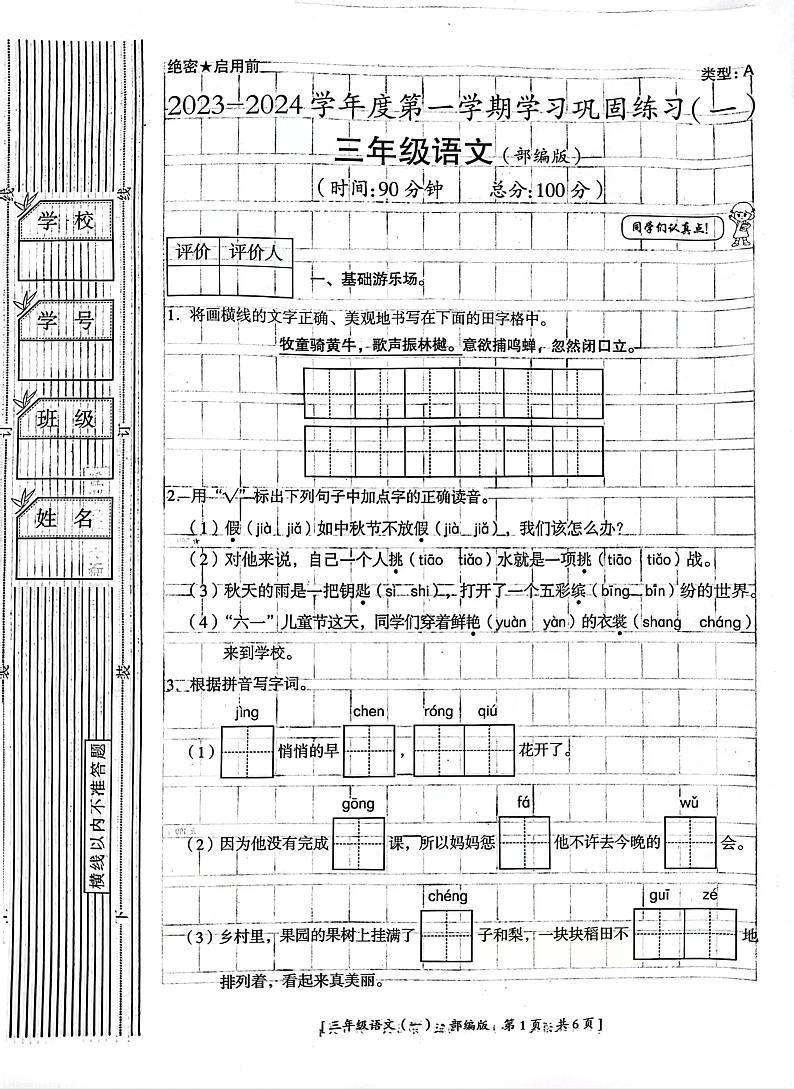 绝密★启用前
类型:A
2023-2024学年度第一学期学习巩固练习(一)
三年级语文(部编版)
(时间:90分钟 总分:100分)
同学们认真点!
评价 评价人
一、基础游乐场。
1. 将画横线的文字正确、美观地书写在下面的田字格中。
牧童骑黄牛，歌声振林樾。意欲捕鸣蝉，忽然闭口立。
2. 用“√”标出下列句子中加点字的正确读音。
(1)假(jià jiǎ)如中秋节不放假(jià jiǎ)，我们该怎么办?
(2)对他来说，自己一个人挑(tiāo tiǎo)水就是一项挑(tiāo tiǎo)战。
(3)秋天的雨是一把钥匙(sì shi)，打开了一个五彩缤(bīng bīn)纷的世界。
(4)“六一”儿童节这天，同学们穿着鲜艳(yuàn yàn)的衣裳(shang cháng)
来到学校。
3. 根据拼音写字词。
jìng chen róng qiú
(1) 悄悄的早 ， 花开了。
gōng fá wǔ
(2)因为他没有完成 课，所以妈妈惩 他不许去今晚的 会。
chéng guī zé
(3)乡村里，果园的果树上挂满了 子和梨，一块块稻田不 地
排列着，看起来真美丽。
[三年级语文(一) 部编版 第1页 共6页]
学校
学号
班级
姓名
横线以内不准答题
线
订
装
线
订
装